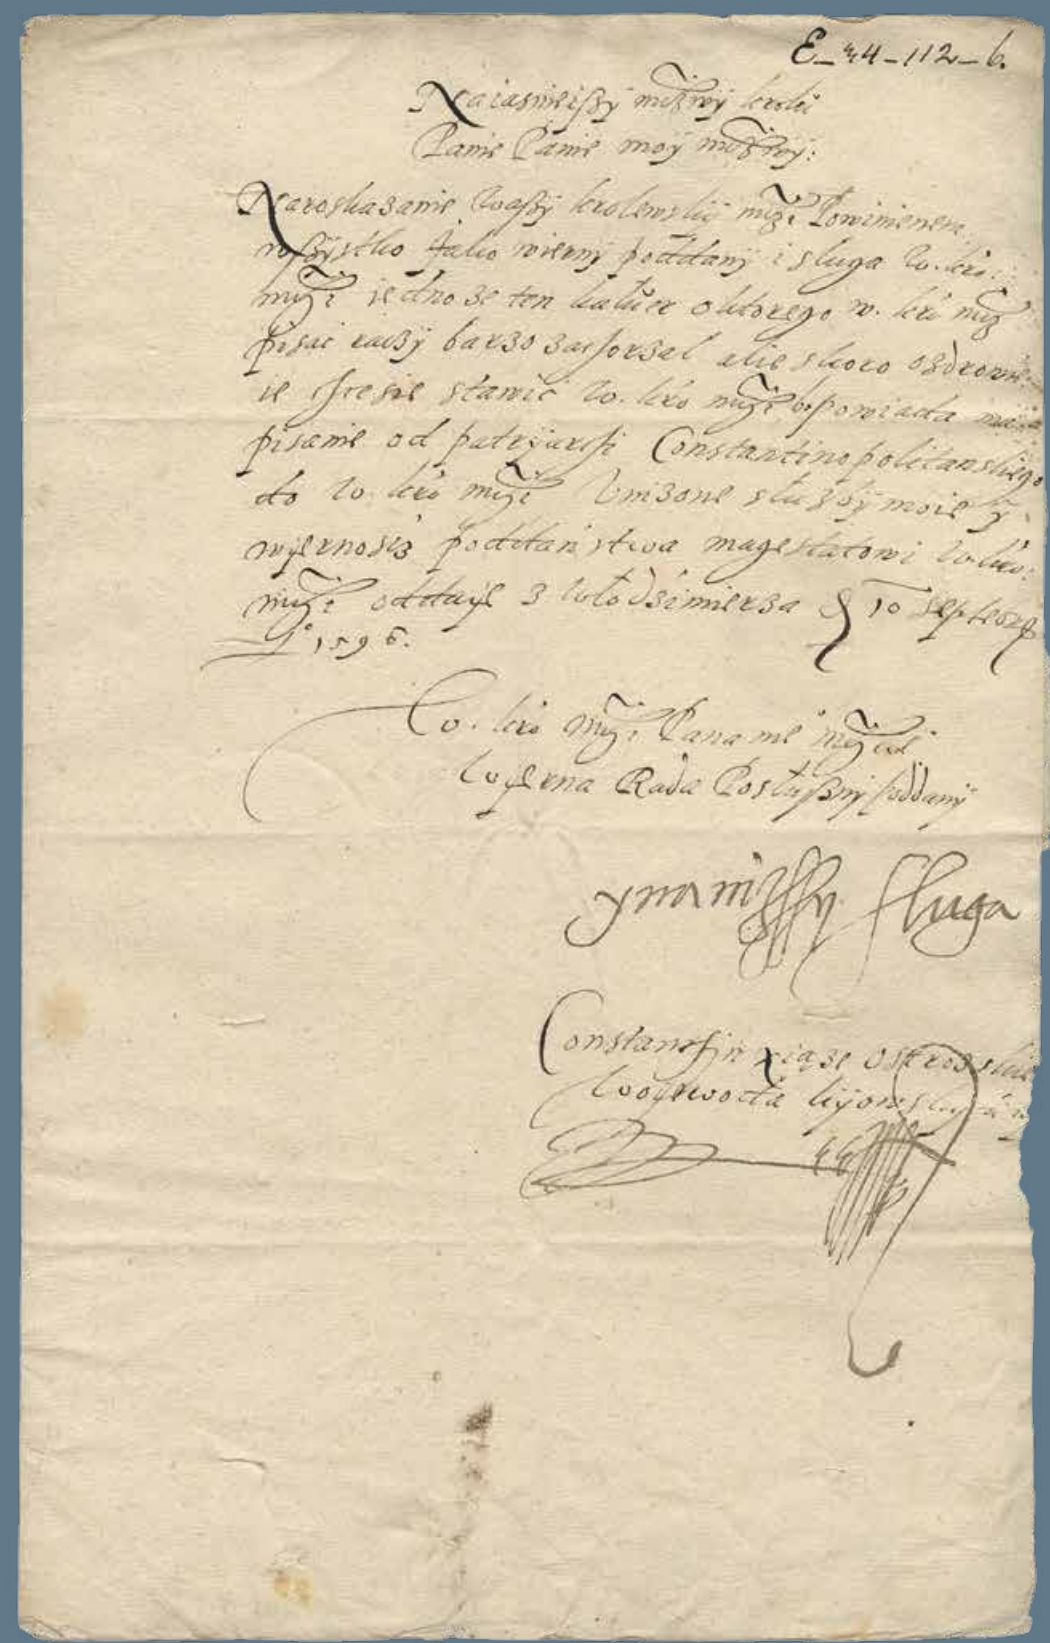 E-44-112-6.
Naiasnieißÿ mczwÿ krolu
Panie Panie moÿ mczwÿ:
Naroskazanie waßÿ krolewskiÿ mczi Powinienem
wßÿstko Jako wiernÿ poddanÿ i sluga w. kro:
mczi iedno ze ten kaluer oktorego w. kro mcz
pisac raczÿ barzo zachorzal alie skoro ozdrowie
ie chcesie stawic w. kro mczi opowiada
pisanie od patryarchi Constantinopolitanskiego
do w. kro mczi Unizone sluzbÿ moie ÿ
wyernosiz poddanstwa magestatowi w. kro:
mczi oddaye z Wlodzimierza 10 septembr
A° 1596.
W. kro mczi Pana me° mcziwe°
Wyerna Rada Posłußnÿ poddanÿ
ynanizssy sluga
Constantyn xiąze ostrozskie
Woyewoda kÿowskÿ